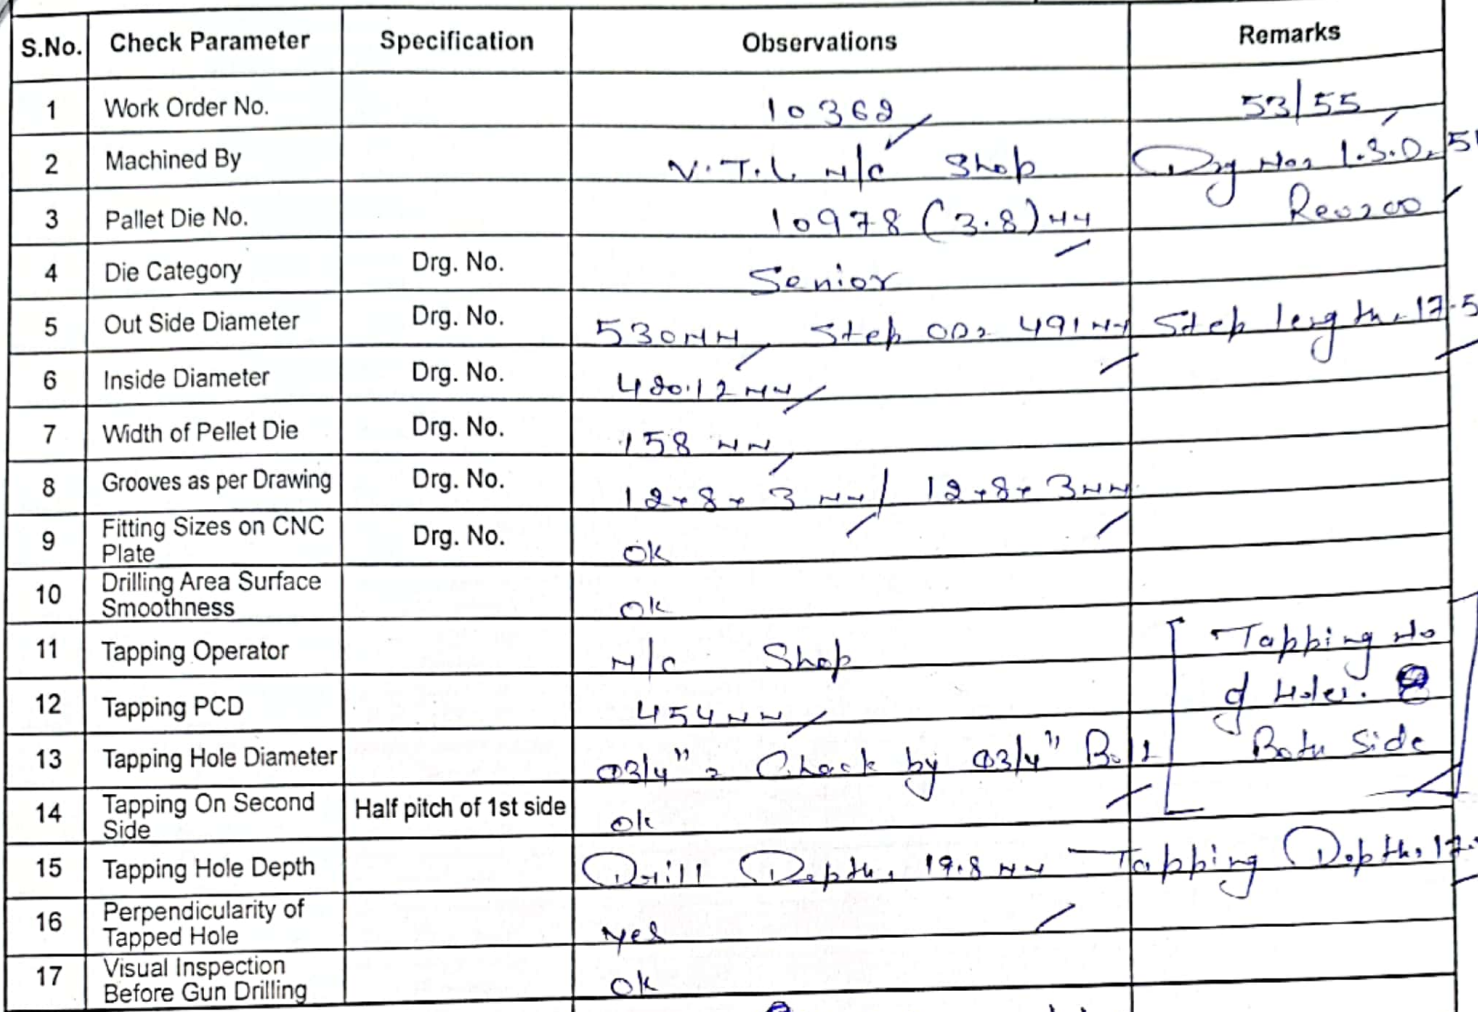 S.No. Check Parameter Specification Observations Remarks
1 Work Order No. 10362 53/55
2 Machined By V.T.L M/C Shop Drg No: I.S.O-
3 Pallet Die No. 10978 (3.8) MM Rev:00
4 Die Category Drg. No. Senior
5 Out Side Diameter Drg. No. 530MM, Step OD: 491MM Step length. 17.5
6 Inside Diameter Drg. No. 420.12 MM
7 Width of Pellet Die Drg. No. 158 MM
8 Grooves as per Drawing Drg. No. 12×8×3 MM/ 12×8×3MM
9 Fitting Sizes on CNC Plate Drg. No. Ok
10 Drilling Area Surface Smoothness Ok
11 Tapping Operator M/C Shop Tapping No
12 Tapping PCD 454MM of Holes. 8
13 Tapping Hole Diameter Ø3/4" = Check by Ø3/4" Bolt Both Side
14 Tapping On Second Side Half pitch of 1st side Ok
15 Tapping Hole Depth Drill Depth. 19.8 MM Tapping Depth.
16 Perpendicularity of Tapped Hole Yes
17 Visual Inspection Before Gun Drilling Ok